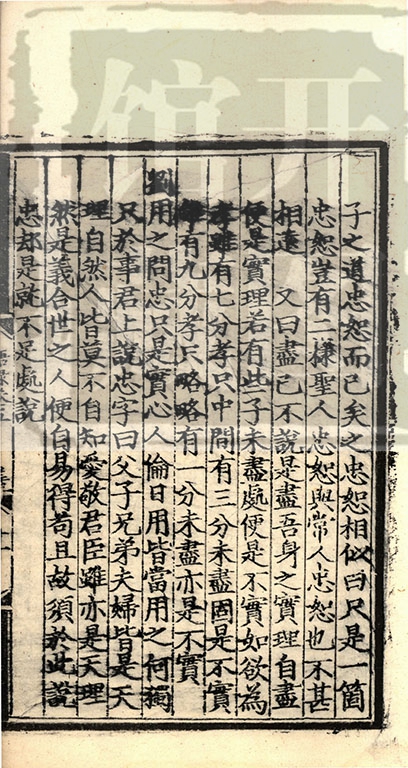 子之道忠恕而已矣之忠恕相似曰只是一箇
忠恕豈有二樣聖人忠恕與常人忠恕也不甚
相遠　又曰盡己不說是盡吾身之實理自盡
便是實理若有些子未盡處便是不實如欲為
孝雖有七分孝只中間有三分未盡固是不實
雖有九分孝只略略有一分未盡亦是不實
劉用之問忠只是實心人倫日用皆當用之何獨
只於事君上說忠字曰父子兄弟夫婦皆是天
理自然人皆莫不自知愛敬君臣雖亦是天理
然是義合世之人便自易得苟且故須於此說
忠却是就不足處說